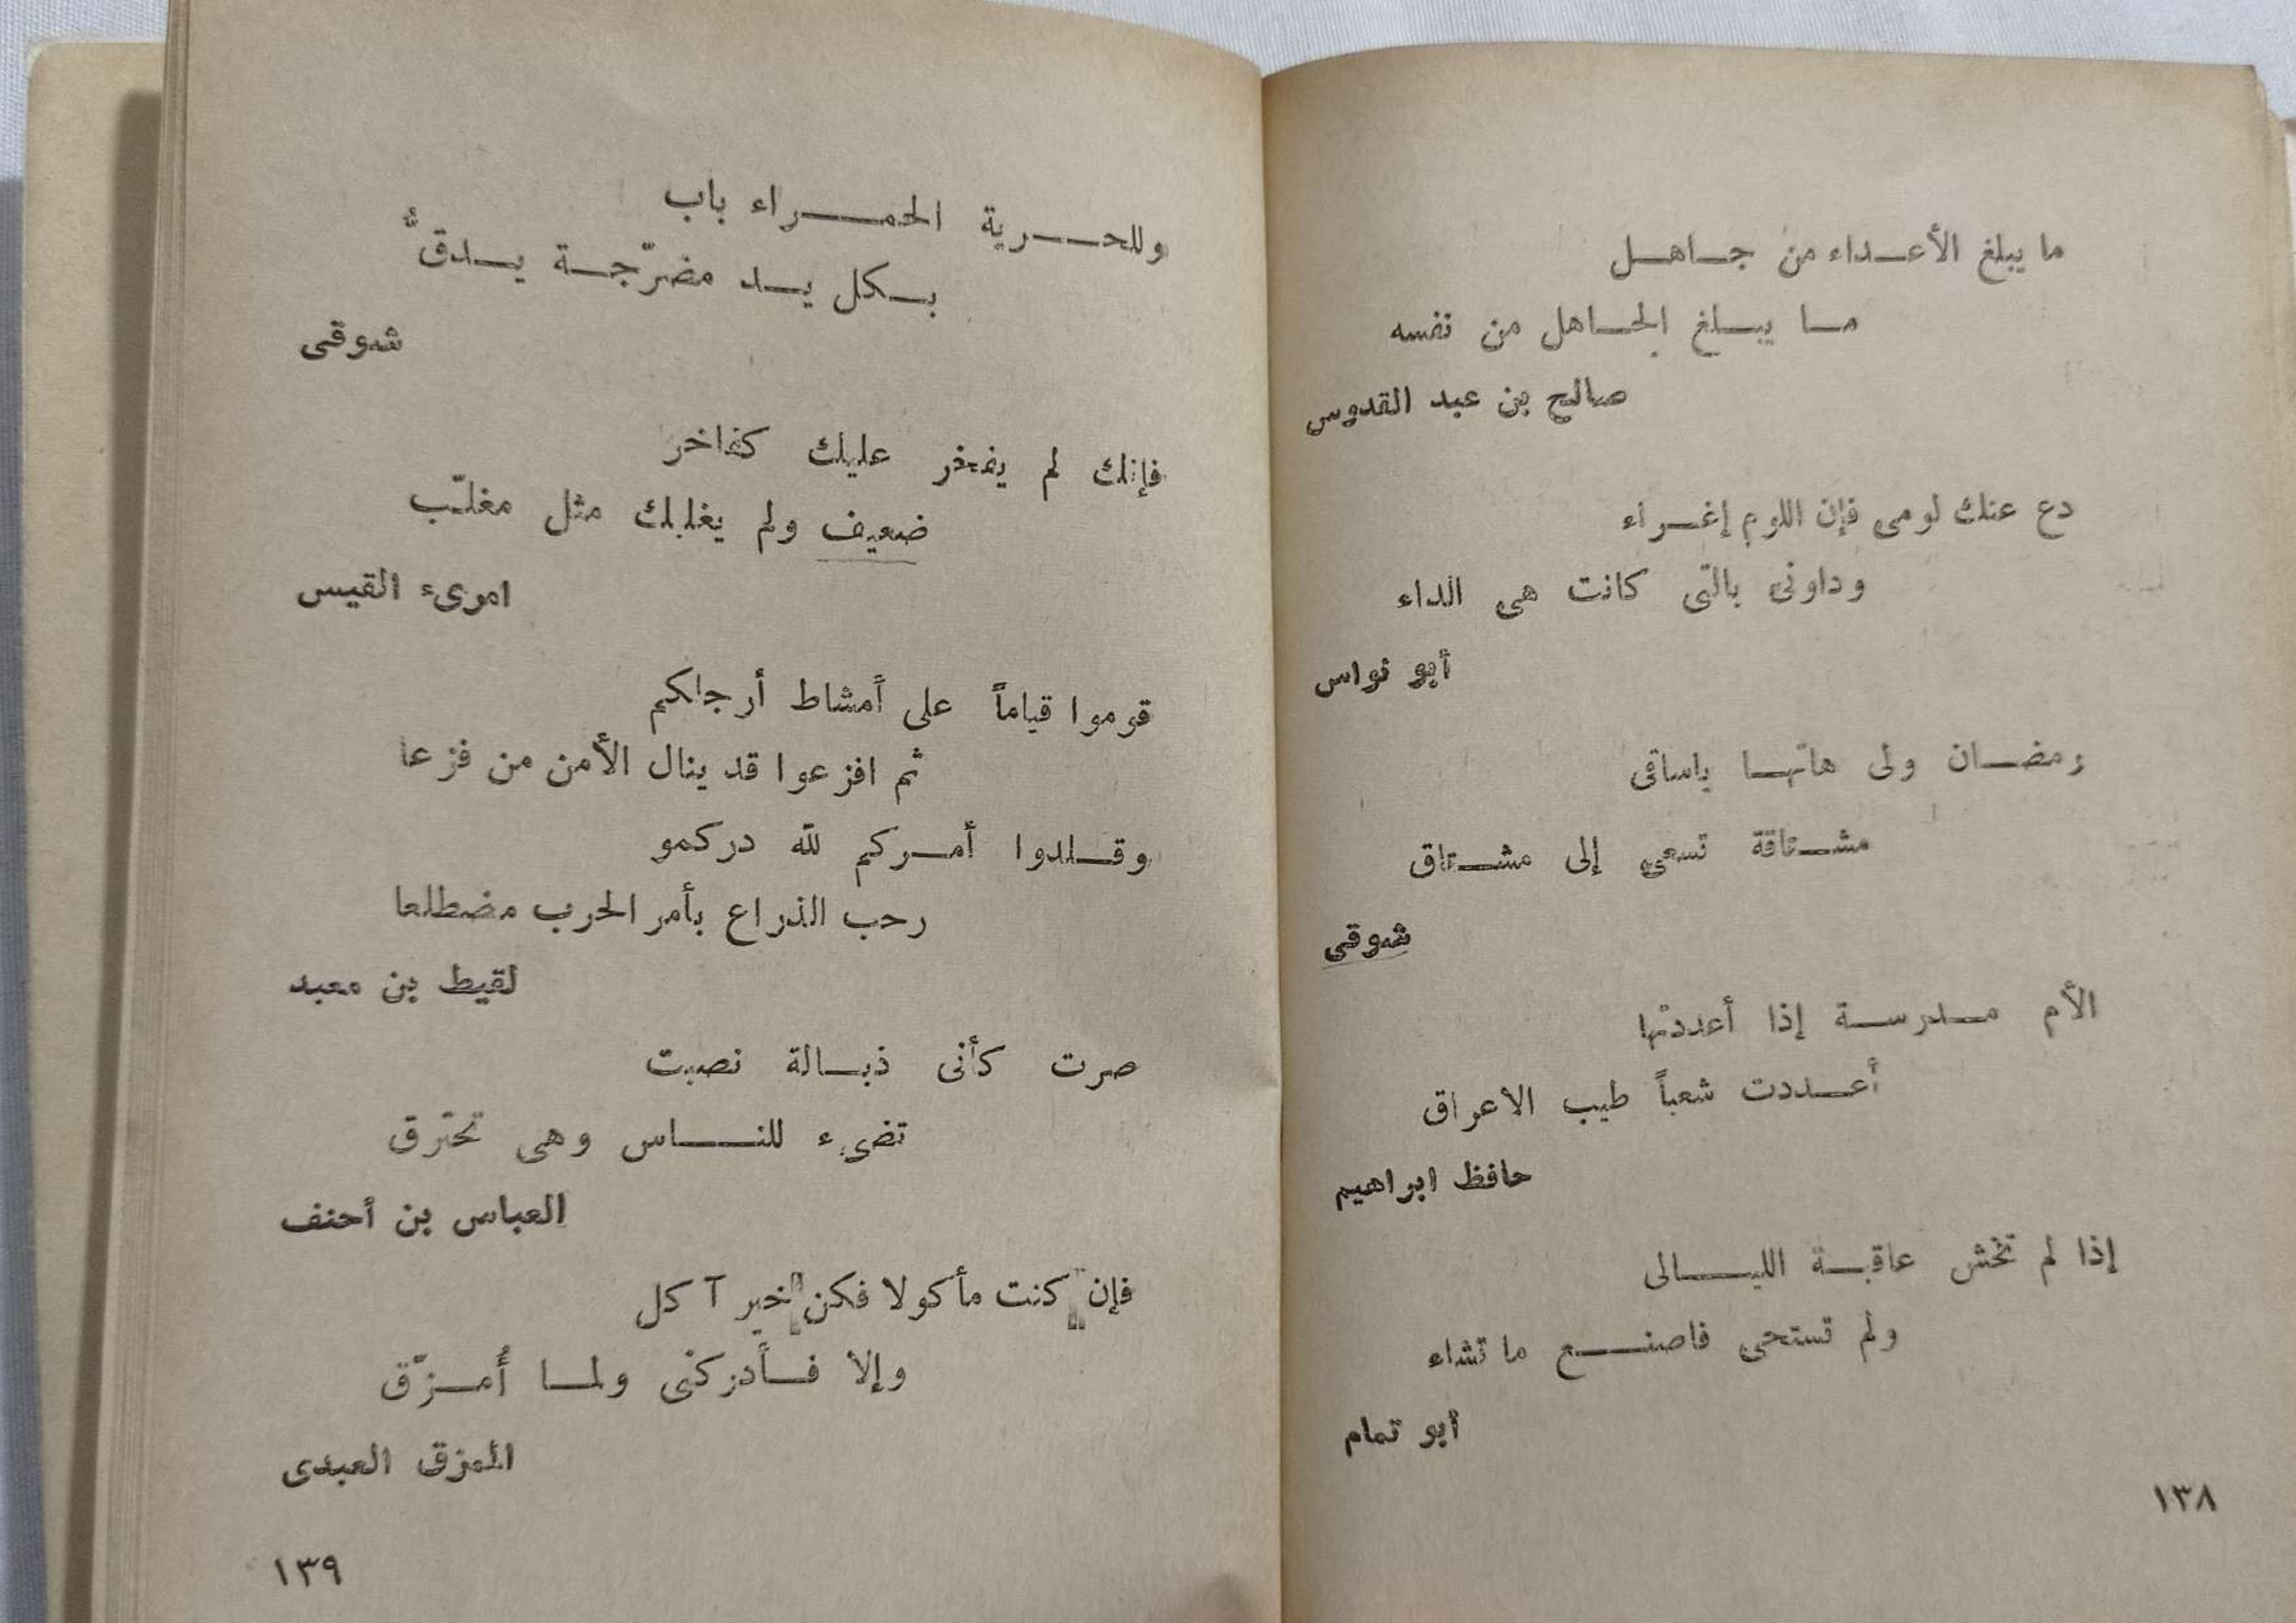 ما يبلغ الأعـداء من جـاهـل
مـا يبـلغ الجـاهل من نفسه
صالح بن عبد القدوس
دع عنك لومى فإن اللوم إغـراء
وداونى بالتى كانت هى الداء
أبو نواس
رمضـان ولى هاتهـا ياساقى
مشـتاقة تسعى إلى مشـتاق
شوقى
الأم مـدرسـة إذا أعددتها
أعـددت شعباً طيب الاعراق
حافظ ابراهيم
إذا لم تخش عاقبـة الليـالى
ولم تستحى فاصنـع ما تشاء
أبو تمام
١٣٨
وللحـرية الحمـراء باب
بـكل يـد مضرّجـة يـدقّ
شوقى
فإنك لم يفخر عليك كفاخر
ضعيف ولم يغلبك مثل مغلّب
امرىء القيس
قوموا قياماً على أمشاط أرجلكم
ثم افزعوا قد ينال الأمن من فزعا
وقـلدوا أمـركم لله دركمو
رحب الذراع بأمر الحرب مضطلعا
لقيط بن معبد
صرت كأنى ذبـالة نصبت
تضىء للنـاس وهى تحترق
العباس بن أحنف
فإن كنت مأكولا فكن خير آكل
وإلا فـأدركنى ولمـا أُمـزّق
الممزق العبدى
١٣٩